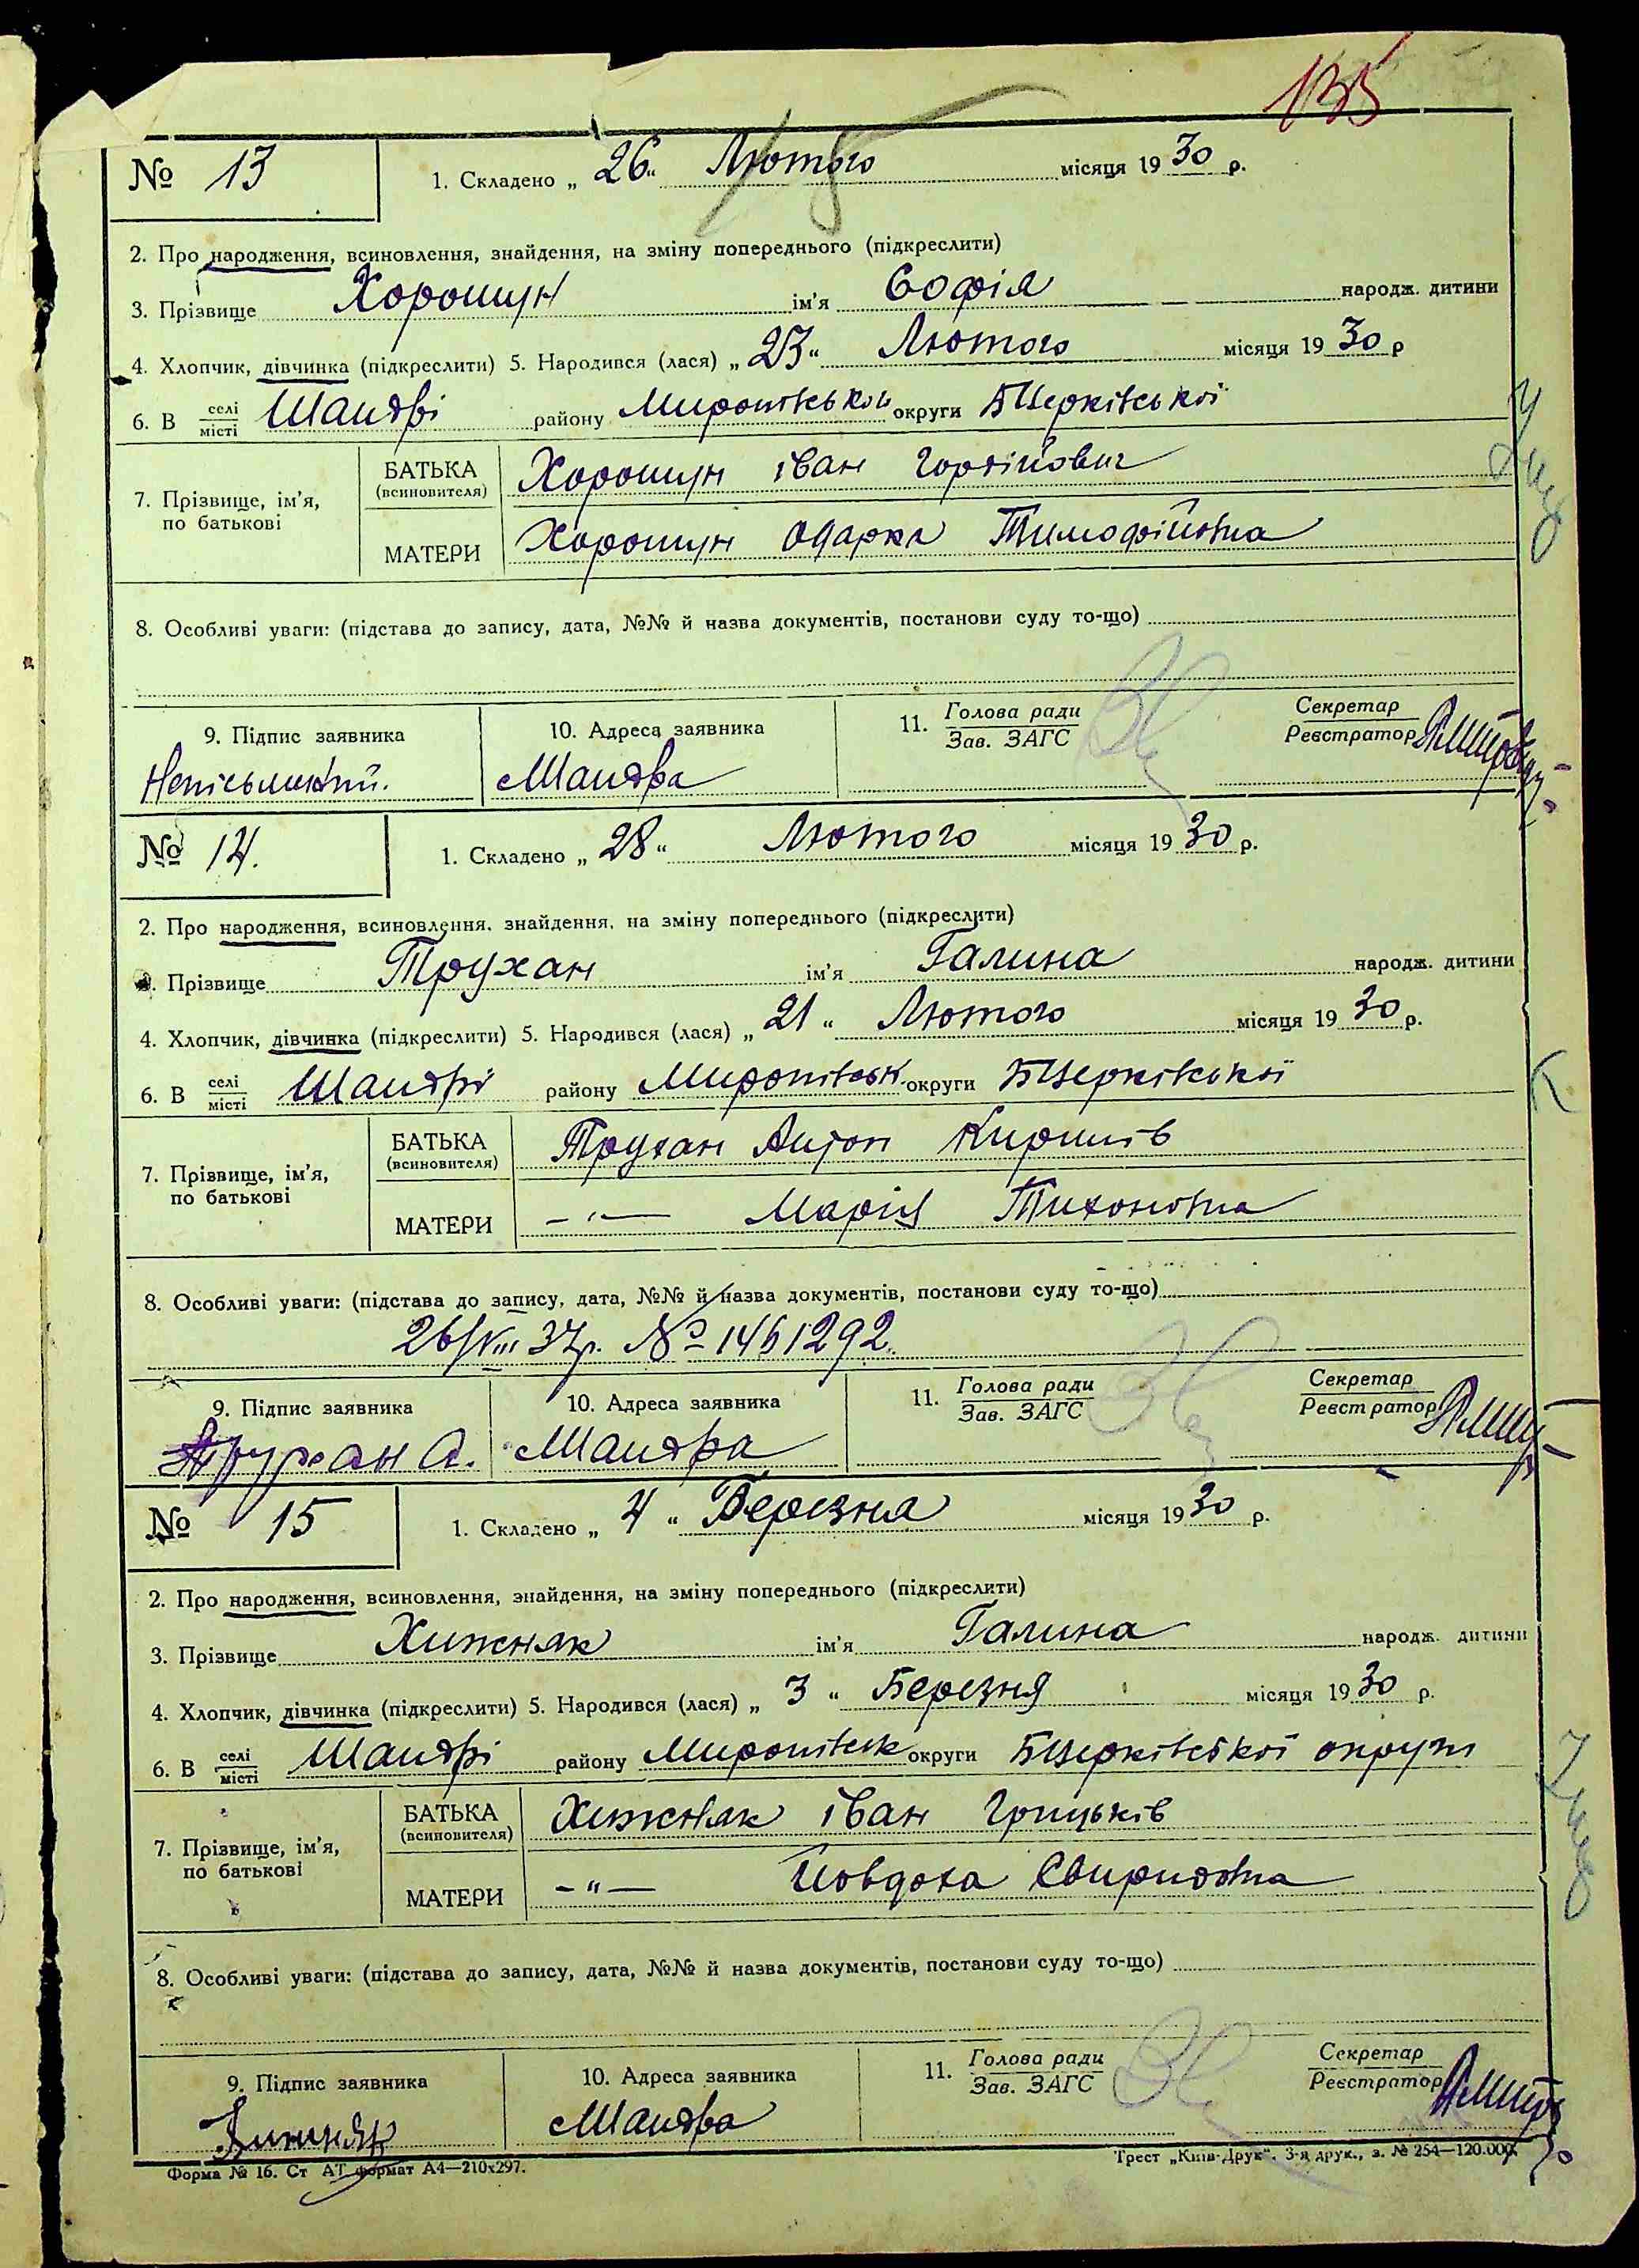 135
№ 13
1. Складено „ 26 “ Лютого місяця 1930 р.
2. Про народження, всиновлення, знайдення, на зміну попереднього (підкреслити)
3. Прізвище Хорошун ім'я Софія народж. дитини
4. Хлопчик, дівчинка (підкреслити) 5. Народився (лася) „ 23 “ Лютого місяця 1930 р
6. В селі/місті Шандрі району Миропівськой округи БЦерківської
7. Прізвище, ім'я, по батькові
БАТЬКА (всиновителя) Хорошун Іван Гордійович
МАТЕРИ Хорошун Одарка Тимофійовна
8. Особливі уваги: (підстава до запису, дата, №№ й назва документів, постанови суду то-що)
9. Підпис заявника 10. Адреса заявника 11. Голова ради/Зав. ЗАГС Секретар/Реєстратор
Шандра
№ 14.
1. Складено „ 28 “ Лютого місяця 1930 р.
2. Про народження, всиновлення, знайдення, на зміну попереднього (підкреслити)
3. Прізвище Трухан ім'я Галина народж. дитини
4. Хлопчик, дівчинка (підкреслити) 5. Народився (лася) „ 21 “ Лютого місяця 1930 р.
6. В селі/місті Шандрі району Миропівськ. округи БЦерківської
7. Прізвище, ім'я, по батькові
БАТЬКА (всиновителя) Трухан Антон Кирилів
МАТЕРИ –"– Марія Тихоновна
8. Особливі уваги: (підстава до запису, дата, №№ й назва документів, постанови суду то-що)
26/VIII 37р. № 1461292.
9. Підпис заявника 10. Адреса заявника 11. Голова ради/Зав. ЗАГС Секретар/Реєстратор
Трухан А. Шандра
№ 15
1. Складено „ 4 “ Березня місяця 1930 р.
2. Про народження, всиновлення, знайдення, на зміну попереднього (підкреслити)
3. Прізвище Хижняк ім'я Галина народж. дитини
4. Хлопчик, дівчинка (підкреслити) 5. Народився (лася) „ 3 “ Березня місяця 1930 р.
6. В селі/місті Шандрі району Миропівськ округи БЦерківської округи
7. Прізвище, ім'я, по батькові
БАТЬКА (всиновителя) Хижняк Іван Грицьків
МАТЕРИ –"– Йовдоха Свиридовна
8. Особливі уваги: (підстава до запису, дата, №№ й назва документів, постанови суду то-що)
9. Підпис заявника 10. Адреса заявника 11. Голова ради/Зав. ЗАГС Секретар/Реєстратор
Хижняк Шандра
Форма № 16. Ст АТ формат А4—210х297. Трест „Київ-Друк“. 3-я друк., з. № 254—120.000.